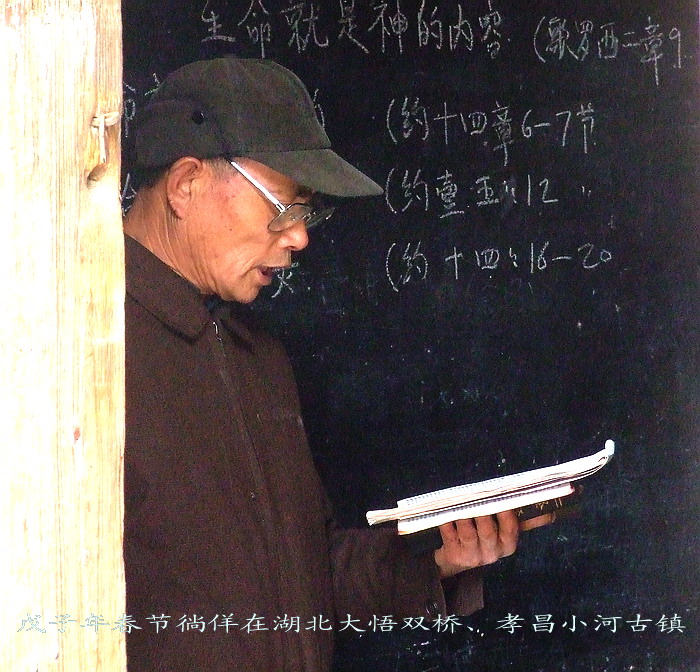 生命就是神的内容 (歌罗西二章9
(约十四章6-7节
(约壹五〃12 〃
(约十四〃16-20
戊子年春节徜佯在湖北大悟双桥、孝昌小河古镇